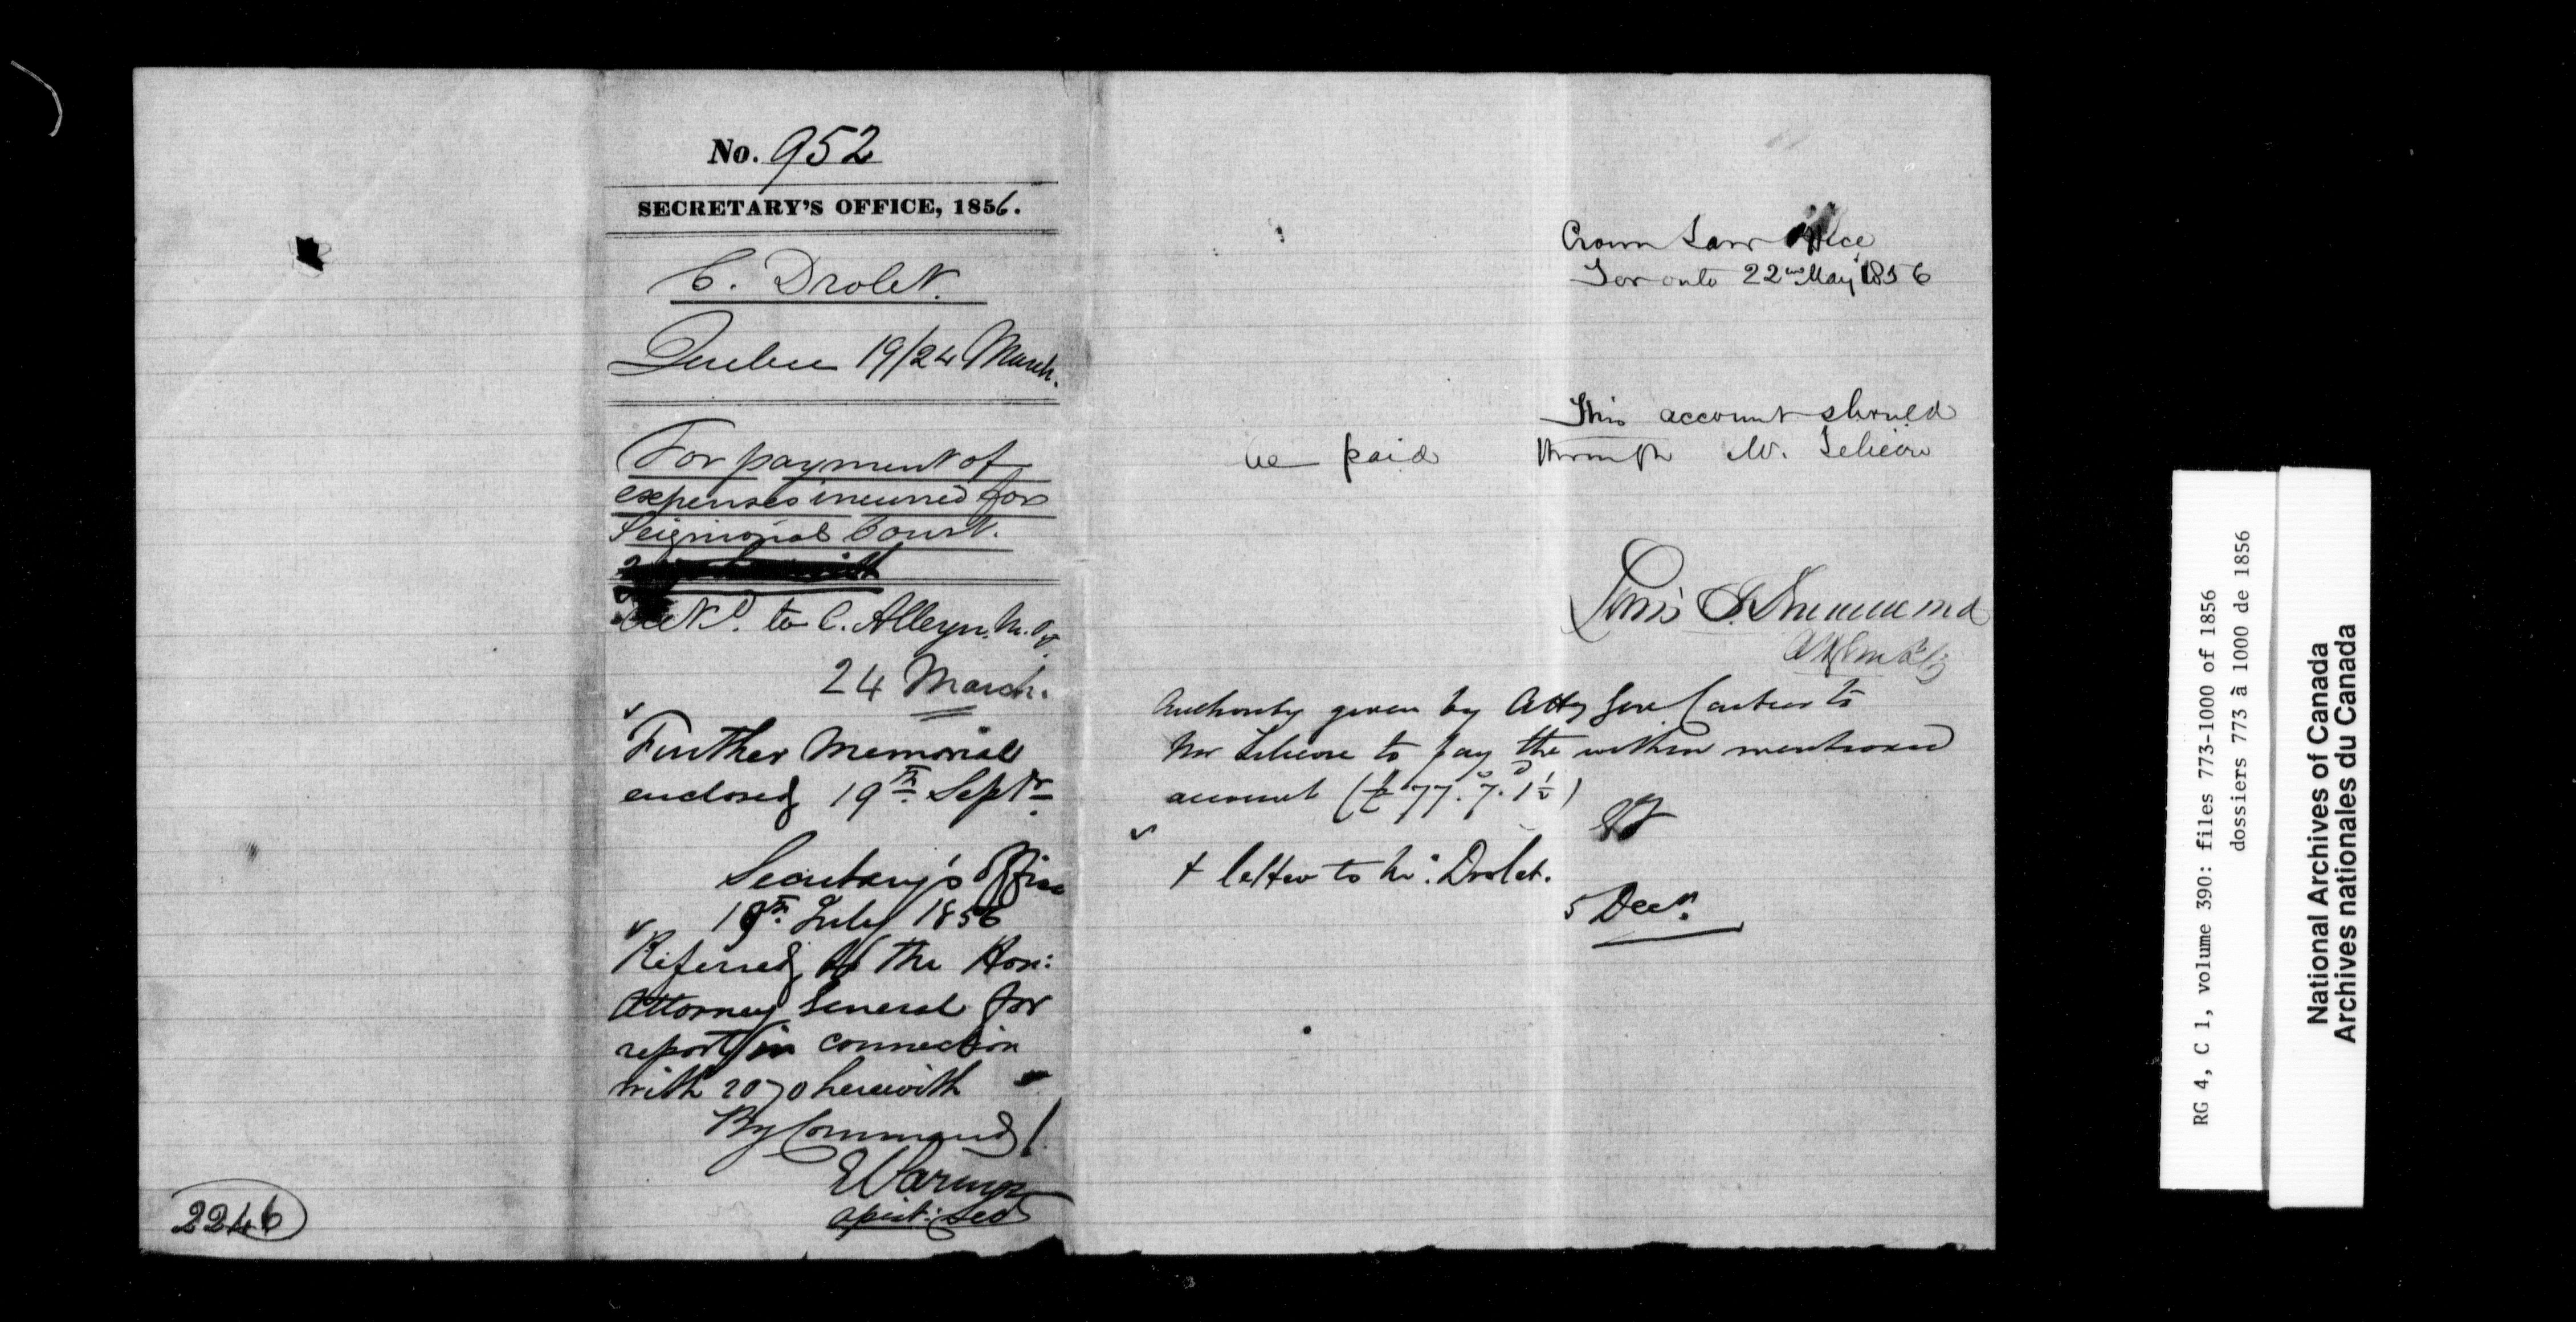 No. 952
SECRETARY'S OFFICE, 1856.
C. Drolet.
Quebec 19/24 March.
For payment of
expenses incurred for
Seigniorial Court.
to C. Alleyn. M.P.P.
24 March.
Further Memorial
enclosed 19th Septr
Secretary's Office
19th July 1856
Referred to the Hon:
Attorney General for
report in connection
with 2070 herewith
By Command
E Parent
Assist: Secy
2246
Crown Law Office
Toronto 22nd May 1856
This account should
be paid through Mr. Lelièvre
Lewis T. Drummond
Atty Genl
Authority given by Atty Genl Cartier to
Mr Lelievre to pay the within mentioned
account (£77. 7. 1½)
+ letter to Mr. Drolet.
5 Decr.
RG 4, C 1, volume 390: files 773-1000 of 1856
dossiers 773 à 1000 de 1856
National Archives of Canada
Archives nationales du Canada